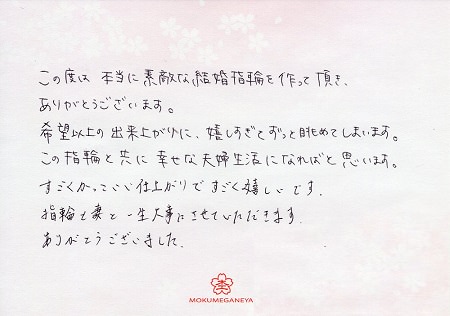 この度は 本当に 素敵な 結婚指輪を作って頂き、
ありがとうございます。
希望以上の 出来上がりに、嬉しすぎて ずっと 眺めてしまいます。
この 指輪と 共に 幸せな 夫婦生活に なればと 思います。
すごくかっこいい仕上がりで すごく 嬉しいです.
指輪も妻も一生大事にさせていただきます.
ありがとうございました.
MOKUMEGANEYA